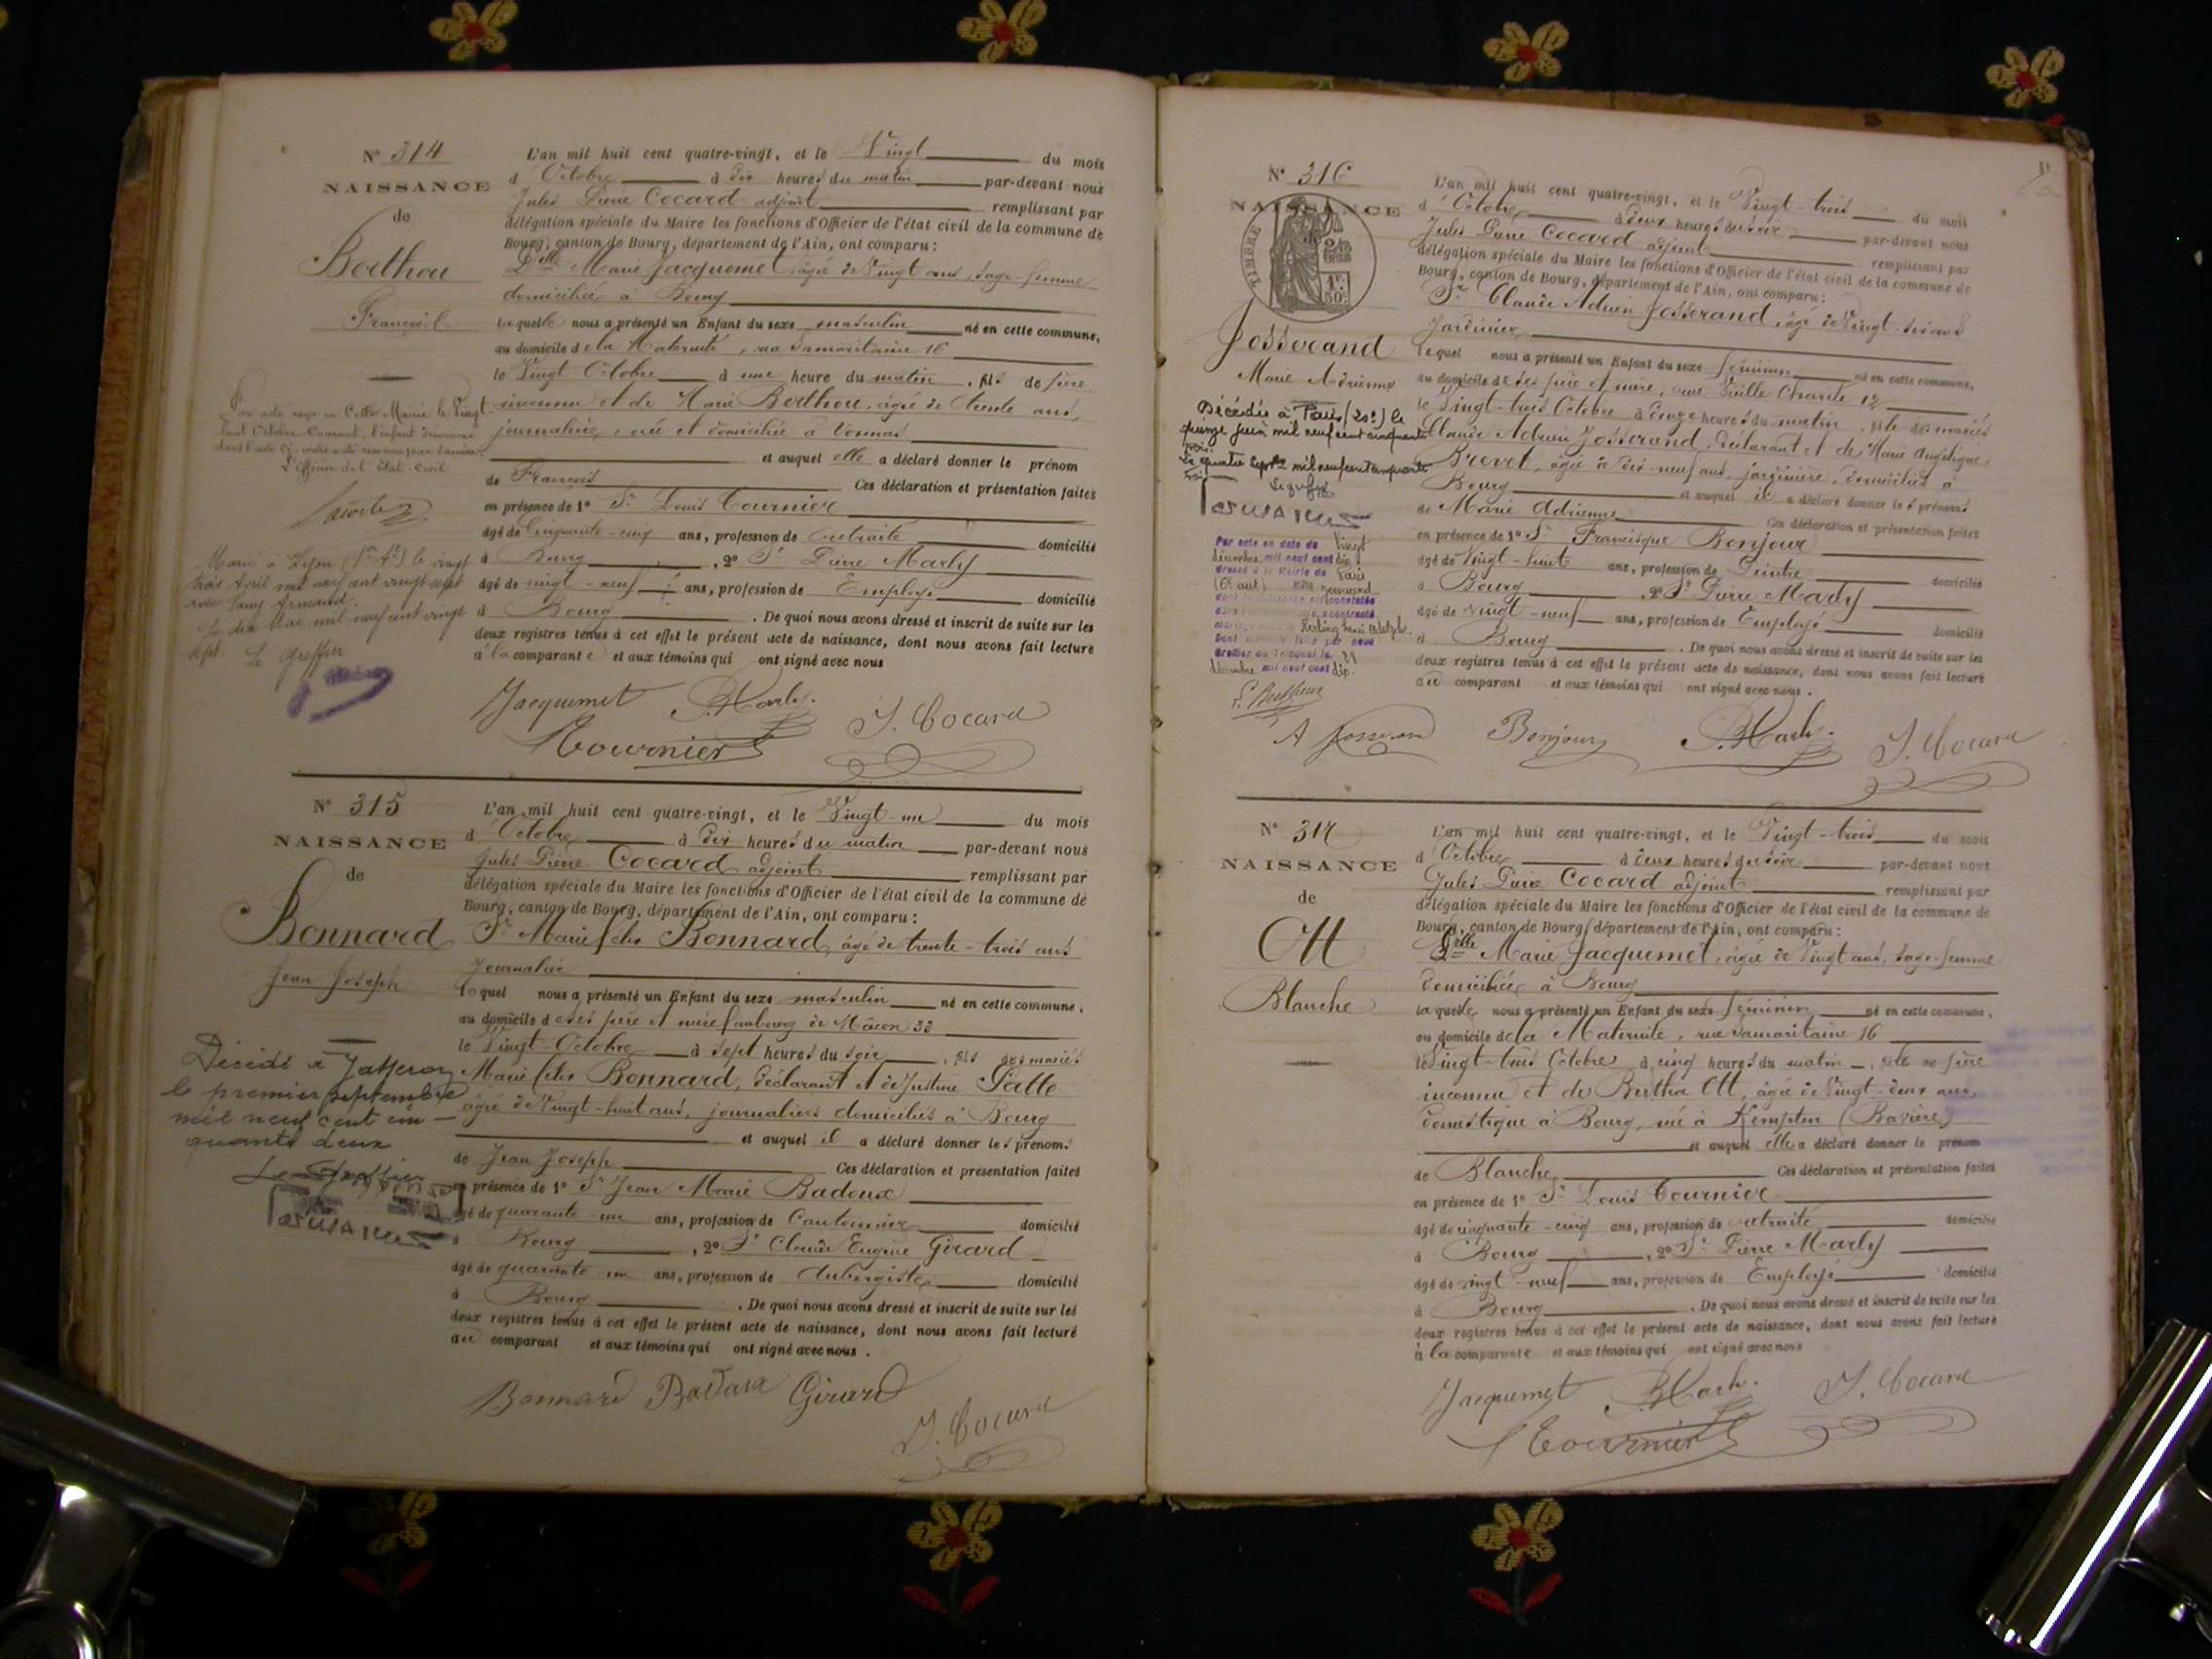 N° 314
NAISSANCE
de
Berthou
François
Par acte reçu en Cette Mairie le Vingt
huit Octobre Courant, l'enfant dénommé
dans l'acte ci-contre a été reconnu par
L'officier de l'Etat-Civil
Marié à Lyon (1er Art) le vingt
trois Avril mil neuf cent vingt sept
avec Armand
Le dix Mai mil neuf cent vingt
sept. Le Greffier
L'an mil huit cent quatre-vingt, et le Vingt du mois
d'Octobre à dix heures du matin par-devant nous
Jules Pierre Cocard adjoint remplissant par
délégation spéciale du Maire les fonctions d'Officier de l'état civil de la commune de
Bourg, canton de Bourg, département de l'Ain, ont comparu :
Delle Marie Jacquemet, âgée de Vingt ans, sage-femme
domiciliée à Bourg
laquelle nous a présenté un Enfant du sexe masculin né en cette commune,
au domicile de la Maternité, rue Samaritaine 16
le Vingt Octobre à une heure du matin, fils de père
inconnu et de Marie Berthou, âgée de trente ans,
journalière, née et domiciliée à Vonnas
et auquel elle a déclaré donner le prénom
de François Ces déclaration et présentation faites
en présence de 1° Sr Louis Tournier
âgé de Cinquante-cinq ans, profession de retraité domicilié
à Bourg, 2° Sr Pierre Marly
âgé de vingt-neuf ans, profession de Employé domicilié
à Bourg. De quoi nous avons dressé et inscrit de suite sur les
deux registres tenus à cet effet le présent acte de naissance, dont nous avons fait lecture
à la comparante et aux témoins qui ont signé avec nous
Jacquemet P. Marly J. Cocard
Tournier
N° 315
NAISSANCE
de
Bonnard
Jean Joseph
Décédé à Jasseron
le premier septembre
mil neuf cent cin-
quante deux
Le Greffier
L'an mil huit cent quatre-vingt, et le Vingt-un du mois
d'Octobre à dix heures du matin par-devant nous
Jules Pierre Cocard adjoint remplissant par
délégation spéciale du Maire les fonctions d'Officier de l'état civil de la commune de
Bourg, canton de Bourg, département de l'Ain, ont comparu :
Sr Marie Félix Bonnard, âgé de trente-trois ans
Journalier
lequel nous a présenté un Enfant du sexe masculin né en cette commune,
au domicile de ses père et mère faubourg de Mâcon 33
le Vingt-Octobre à Sept heures du soir, fils des mariés
Marie Félix Bonnard, déclarant et de Justine
âgée de Vingt-huit ans, journaliers domiciliés à Bourg
et auquel il a déclaré donner les prénoms
de Jean Joseph Ces déclaration et présentation faites
en présence de 1° Sr Jean Marie Badoux
âgé de quarante-un ans, profession de Cantonnier domicilié
à Bourg, 2° Sr Claude Eugène Girard
âgé de quarante un ans, profession de Aubergiste domicilié
à Bourg. De quoi nous avons dressé et inscrit de suite sur les
deux registres tenus à cet effet le présent acte de naissance, dont nous avons fait lecture
au comparant et aux témoins qui ont signé avec nous.
Bonnard Badoux Girard
J. Cocard
N° 316
NAISSANCE
TIMBRE
Josserand
Marie Adrienne
Décédée à Paris (20e) le
quinze juin mil neuf cent cinquante
trois
Le quatre Septbre mil neuf cent cinquante
trois
Le greffier
Par acte en date du Vingt
décembre mil neuf cent dix
dressé à la Mairie de Paris
mil neuf cent dix.
L'an mil huit cent quatre-vingt, et le Vingt-trois du mois
d'Octobre à deux heures du soir par-devant nous
Jules Pierre Cocard adjoint remplissant par
délégation spéciale du Maire les fonctions d'Officier de l'état civil de la commune de
Bourg, canton de Bourg, département de l'Ain, ont comparu :
Sr Claude Adrien Josserand, âgé de Vingt-six ans
Jardinier
lequel nous a présenté un Enfant du sexe féminin né en cette commune,
au domicile de ses père et mère, rue Vieille Charité 12
le Vingt-trois Octobre à onze heures du matin, fille des mariés
Claude Adrien Josserand, déclarant et de Marie Angélique
Brevet, âgée de dix-neuf ans, jardinière, domiciliés à
Bourg et auquel il a déclaré donner les prénoms
de Marie Adrienne Ces déclaration et présentation faites
en présence de 1° Sr Francisque Bonjour
âgé de Vingt-huit ans, profession de Peintre domicilié
à Bourg, 2° Sr Pierre Marly
âgé de vingt-neuf ans, profession de Employé domicilié
à Bourg. De quoi nous avons dressé et inscrit de suite sur les
deux registres tenus à cet effet le présent acte de naissance, dont nous avons fait lecture
au comparant et aux témoins qui ont signé avec nous.
A Josserand Bonjour P. Marly J. Cocard
N° 317
NAISSANCE
de
Ott
Blanche
L'an mil huit cent quatre-vingt, et le Vingt-trois du mois
d'Octobre à deux heures du soir par-devant nous
Jules Pierre Cocard adjoint remplissant par
délégation spéciale du Maire les fonctions d'Officier de l'état civil de la commune de
Bourg, canton de Bourg, département de l'Ain, ont comparu :
Delle Marie Jacquemet, âgée de Vingt ans, sage-femme
domiciliée à Bourg
laquelle nous a présenté un Enfant du sexe féminin né en cette commune,
au domicile de la Maternité, rue Samaritaine 16
le Vingt-trois Octobre à cinq heures du matin, fille de père
inconnu et de Bertha Ott, âgée de Vingt-deux ans,
domestique à Bourg, née à Kempten (Bavière)
et auquel elle a déclaré donner le prénom
de Blanche Ces déclaration et présentation faites
en présence de 1° Sr Louis Tournier
âgé de cinquante-cinq ans, profession de retraité domicilié
à Bourg, 2° Sr Pierre Marly
âgé de vingt-neuf ans, profession de Employé domicilié
à Bourg. De quoi nous avons dressé et inscrit de suite sur les
deux registres tenus à cet effet le présent acte de naissance, dont nous avons fait lecture
à la comparante et aux témoins qui ont signé avec nous
Jacquemet P. Marly J. Cocard
Tournier